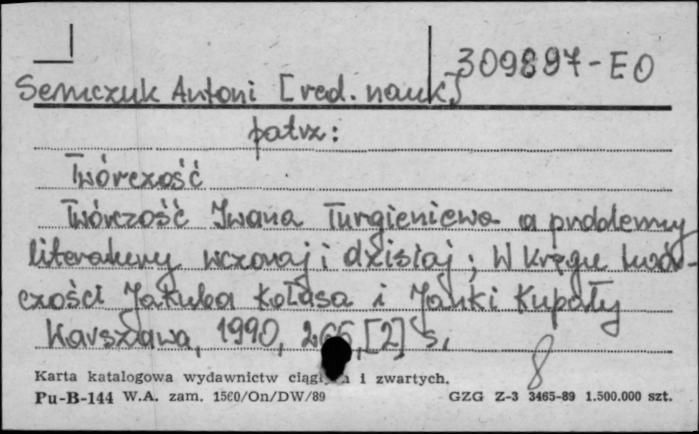 309897-EO
Semczuk Antoni [red. nauk.]
patrz:
Twórczość
Twórczość Iwana Turgieniewa a problemy
literatury wczoraj i dzisiaj; W kręgu twór-
czości Jakuba Kołasa i Janki Kupały
Warszawa, 1990, 266, [2] s.
8
Karta katalogowa wydawnictw ciągłych i zwartych.
Pu-B-144 W.A. zam. 1560/On/DW/89 GZG Z-3 3465-89 1.500.000 szt.